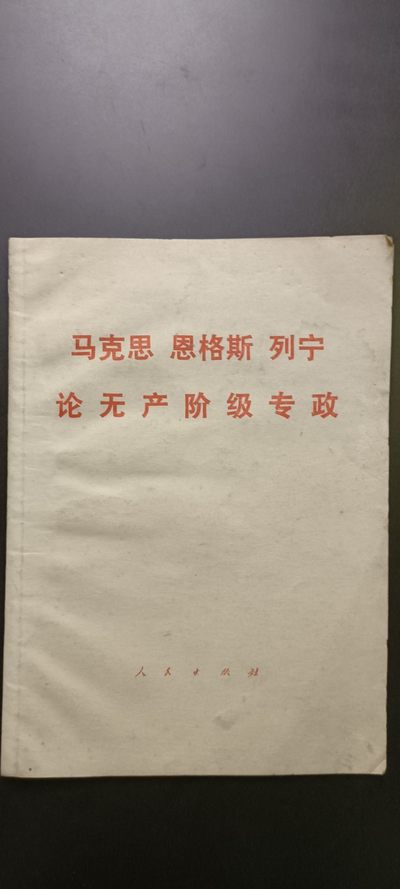 马克思 恩格斯 列宁
论无产阶级专政
人民出版社